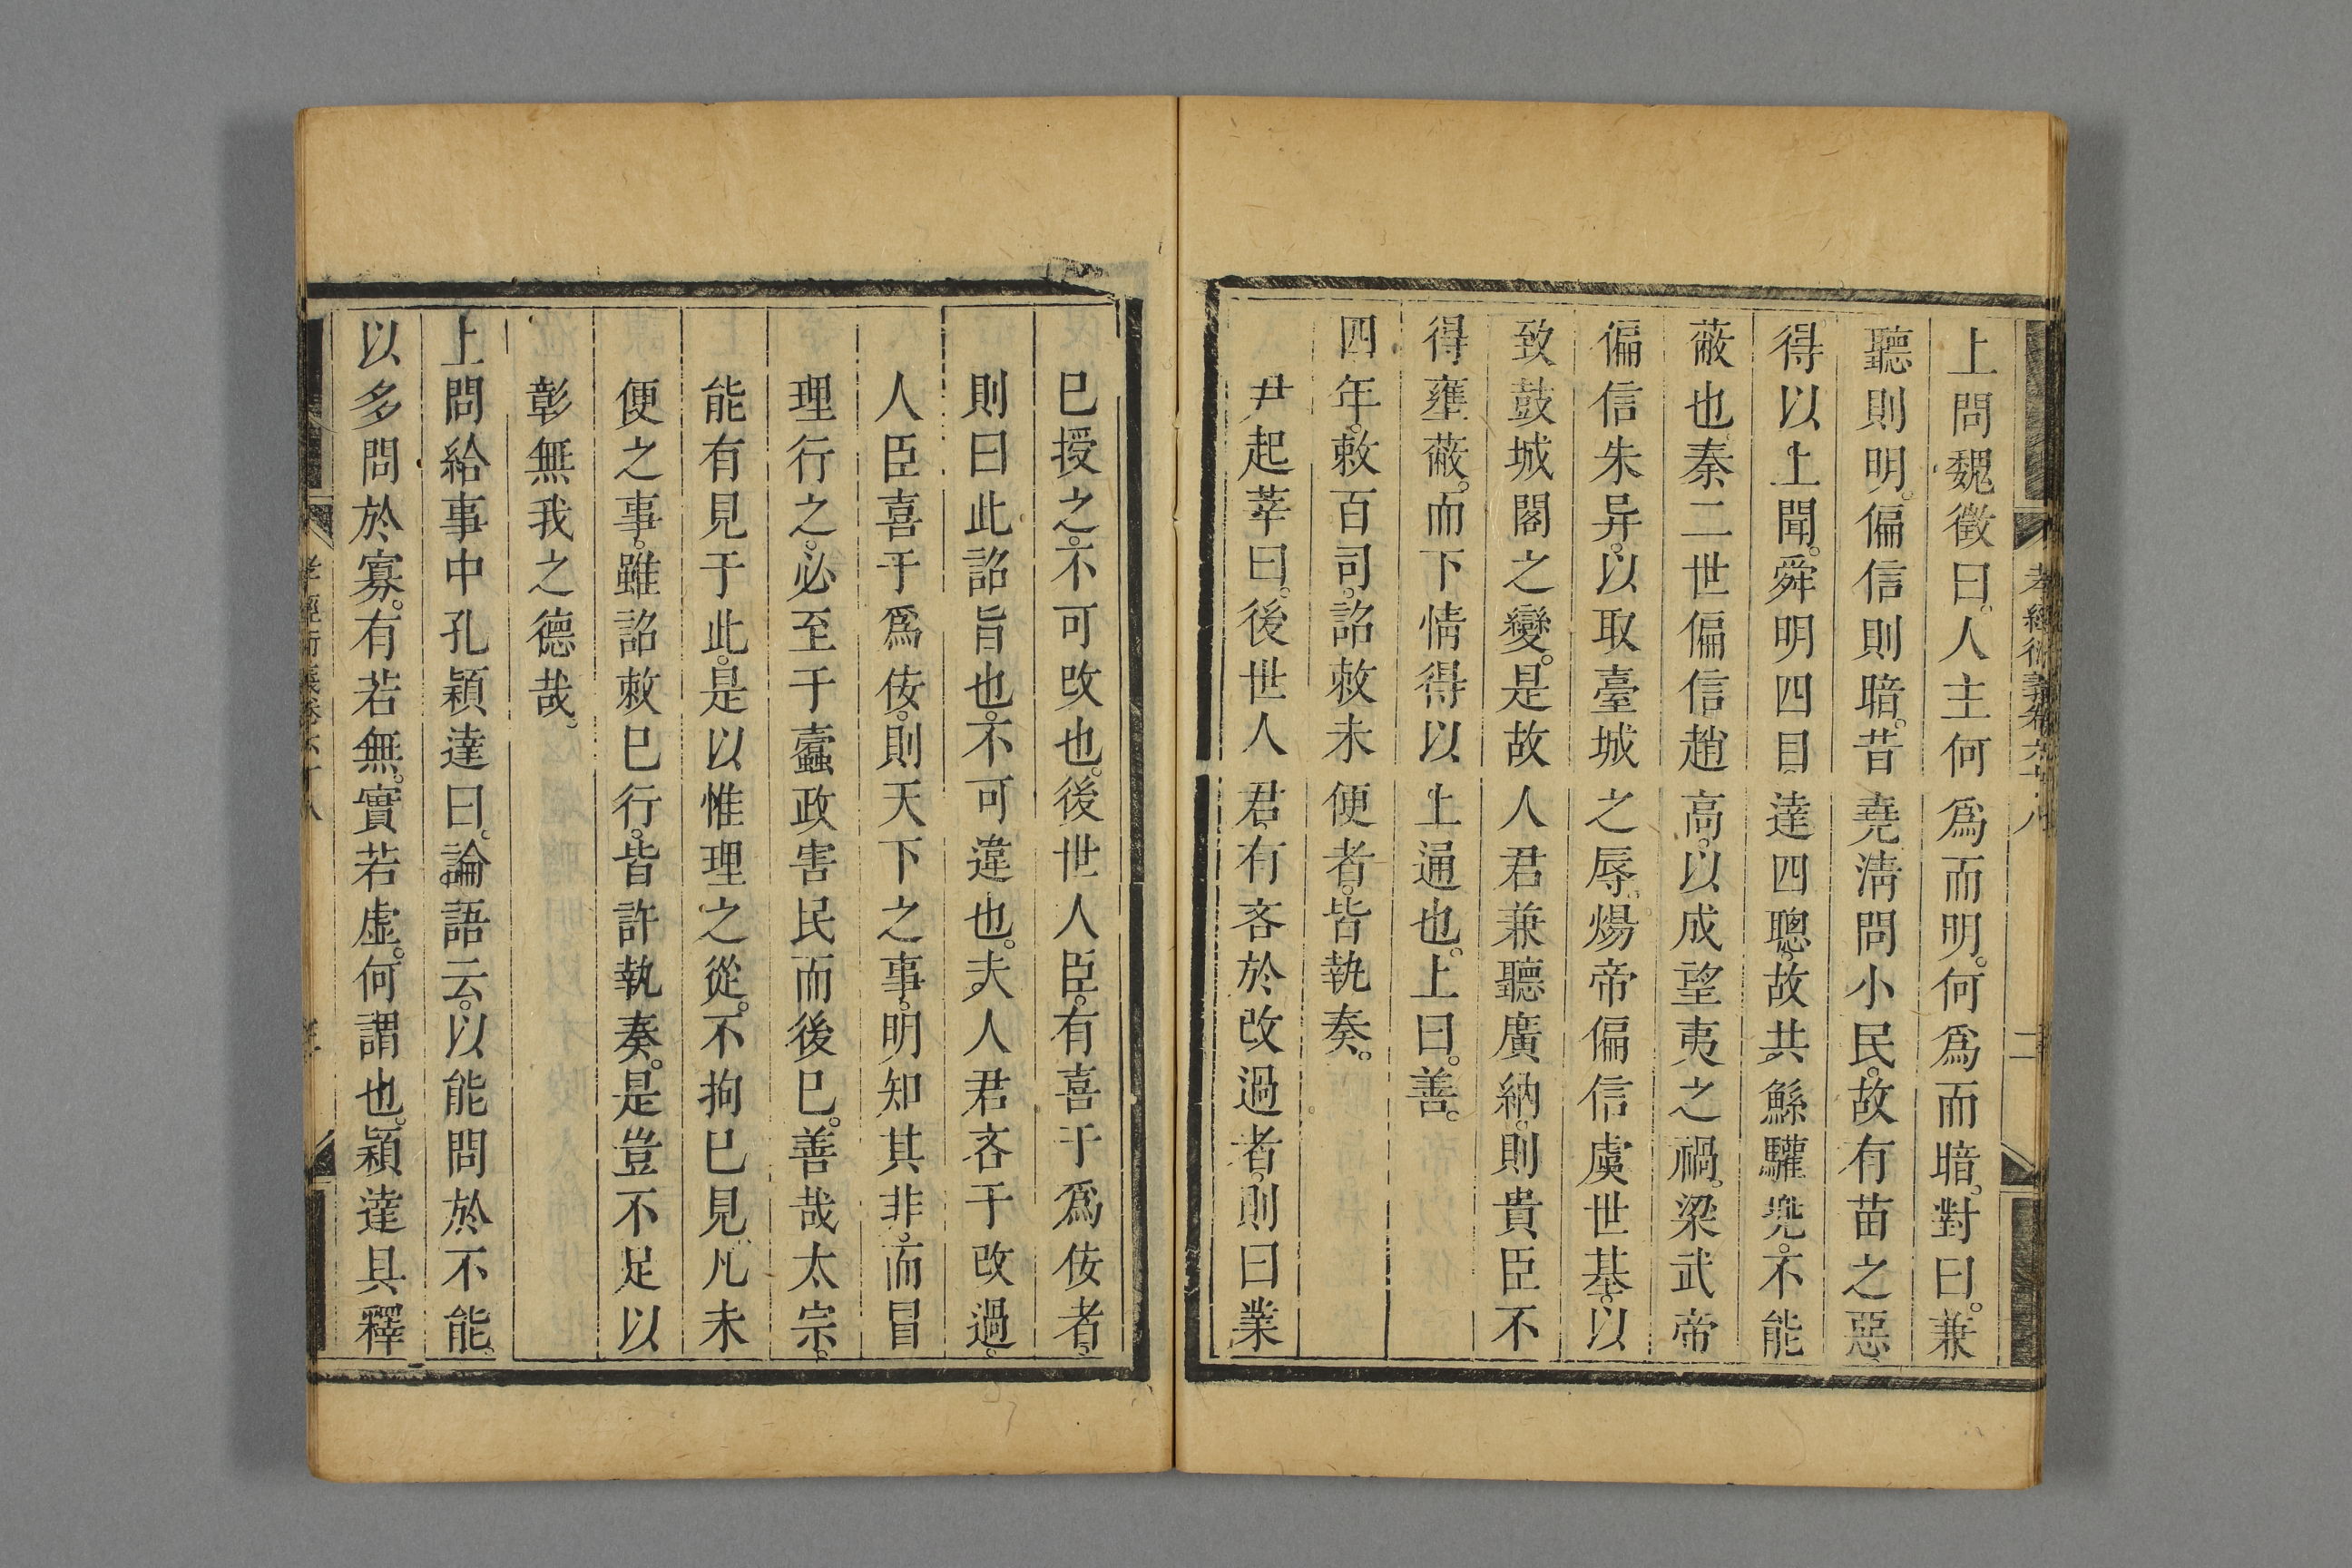 孝經衍義卷六十八 二
上問魏徵曰。人主何爲而明。何爲而暗。對曰。兼
聽則明。偏信則暗。昔堯淸問小民。故有苗之惡
得以上聞。舜明四目達四聰。故共鯀驩兠。不能
蔽也。秦二世偏信趙高。以成望夷之禍。梁武帝
偏信朱异。以取臺城之辱。煬帝偏信虞世基。以
致鼓城閣之變。是故人君兼聽廣納。則貴臣不
得壅蔽。而下情得以上通也。上曰。善。
四年。敕百司。詔敕未便者。皆執奏。
尹起莘曰。後世人君。有吝於改過者。則曰業
已授之。不可改也。後世人臣。有喜于爲侫者。
則曰此詔旨也。不可違也。夫人君吝于改過。
人臣喜于爲侫。則天下之事。明知其非。而冒
理行之。必至于蠹政害民而後已。善哉太宗。
能有見于此。是以惟理之從。不拘已見。凡未
便之事。雖詔敕已行。皆許執奏。是豈不足以
彰無我之德哉。
上問給事中孔穎達曰。論語云。以能問於不能。
以多問於寡。有若無。實若虛。何謂也。穎達具釋
孝經衍義卷六十八